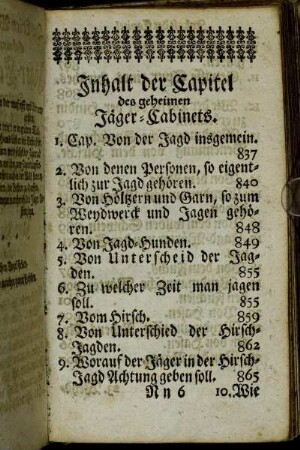 Inhalt der Capitel
des geheimen
Jäger-Cabinets.
1. Cap. Von der Jagd insgemein.
837
2. Von denen Personen, so eigent-
lich zur Jagd gehören. 840
3. Von Höltzern und Garn, so zum
Weydwerck und Jagen gehö-
ren. 848
4. Von Jagd-Hunden. 849
5. Von Unterscheid der Jag-
den. 855
6. Zu welcher Zeit man jagen
soll. 855
7. Vom Hirsch. 859
8. Von Unterschied der Hirsch-
Jagden. 862
9. Worauf der Jäger in der Hirsch-
Jagd Achtung geben soll. 865
N n 6 10. Wie